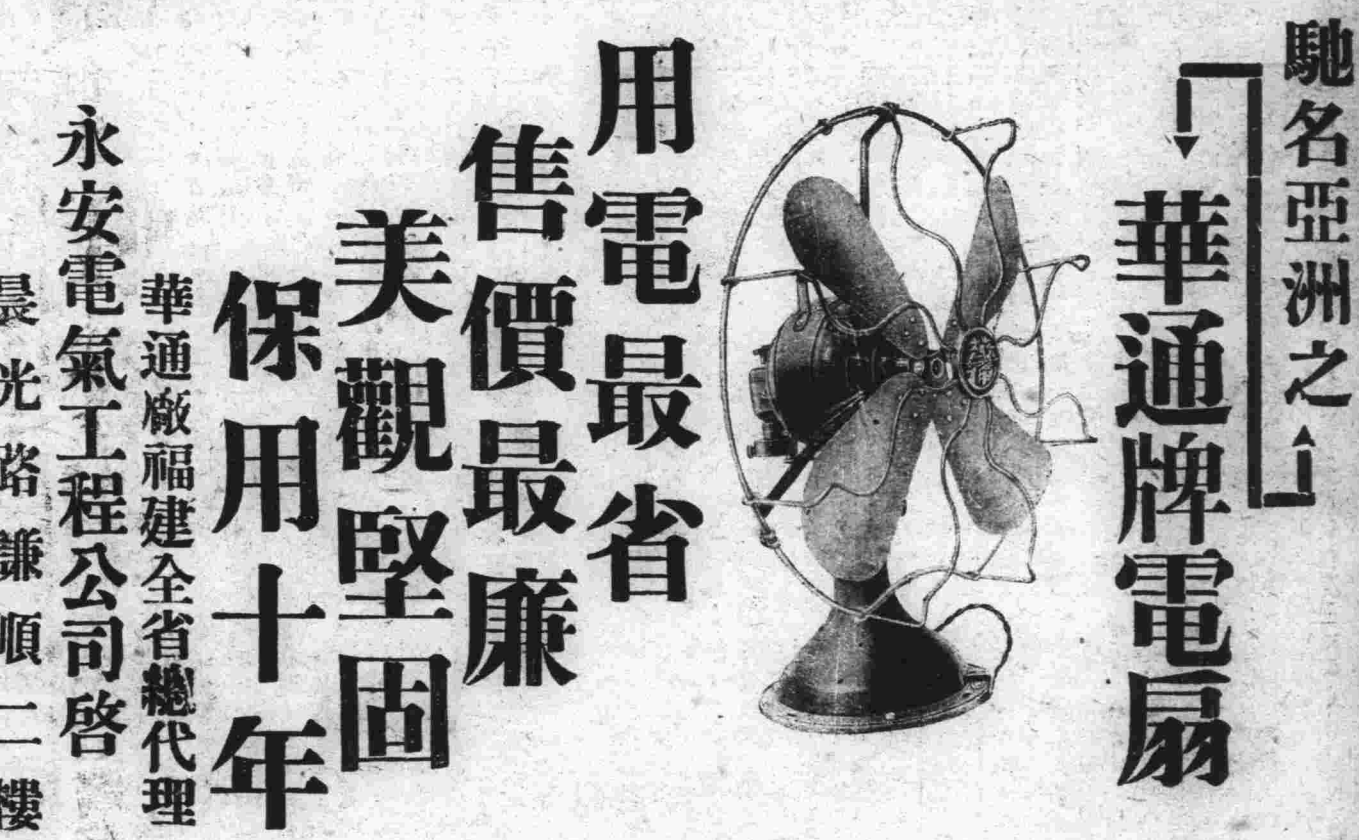 馳名亞洲之
華通牌電扇
用電最省
售價最廉
美觀堅固
保用十年
華通廠福建全省總代理
永安電氣工程公司啓
晨光路鎌順二樓